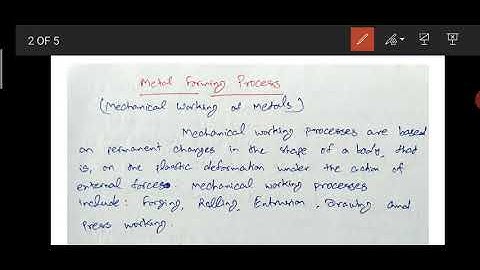 2 OF 5
Metal Forming Process
(Mechanical Working of Metals)
Mechanical working processes are based
on permanent changes in the shape of a body, that
is, on one plastic deformation under the action of
external forces. Mechanical working processes
include: Forging, Rolling, Extrusion, Drawing and
Press working.